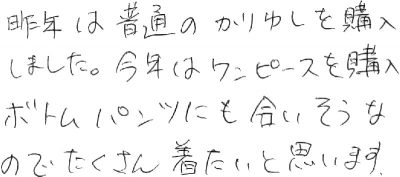 昨年は普通のかりゆしを購入
しました。今年はワンピースを購入
ボトムパンツにも合いそうな
のでたくさん着たいと思います.